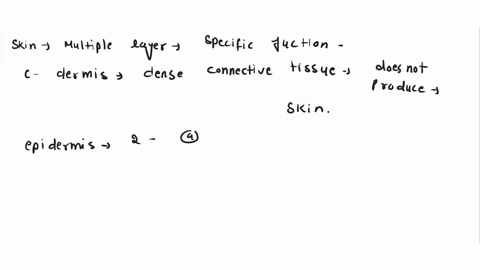 Skin → Multiple layer → Specific fuction -
c- dermis → dense connective tissue → does not
Produce →
Skin.
epidermis → 2 - ⓐ